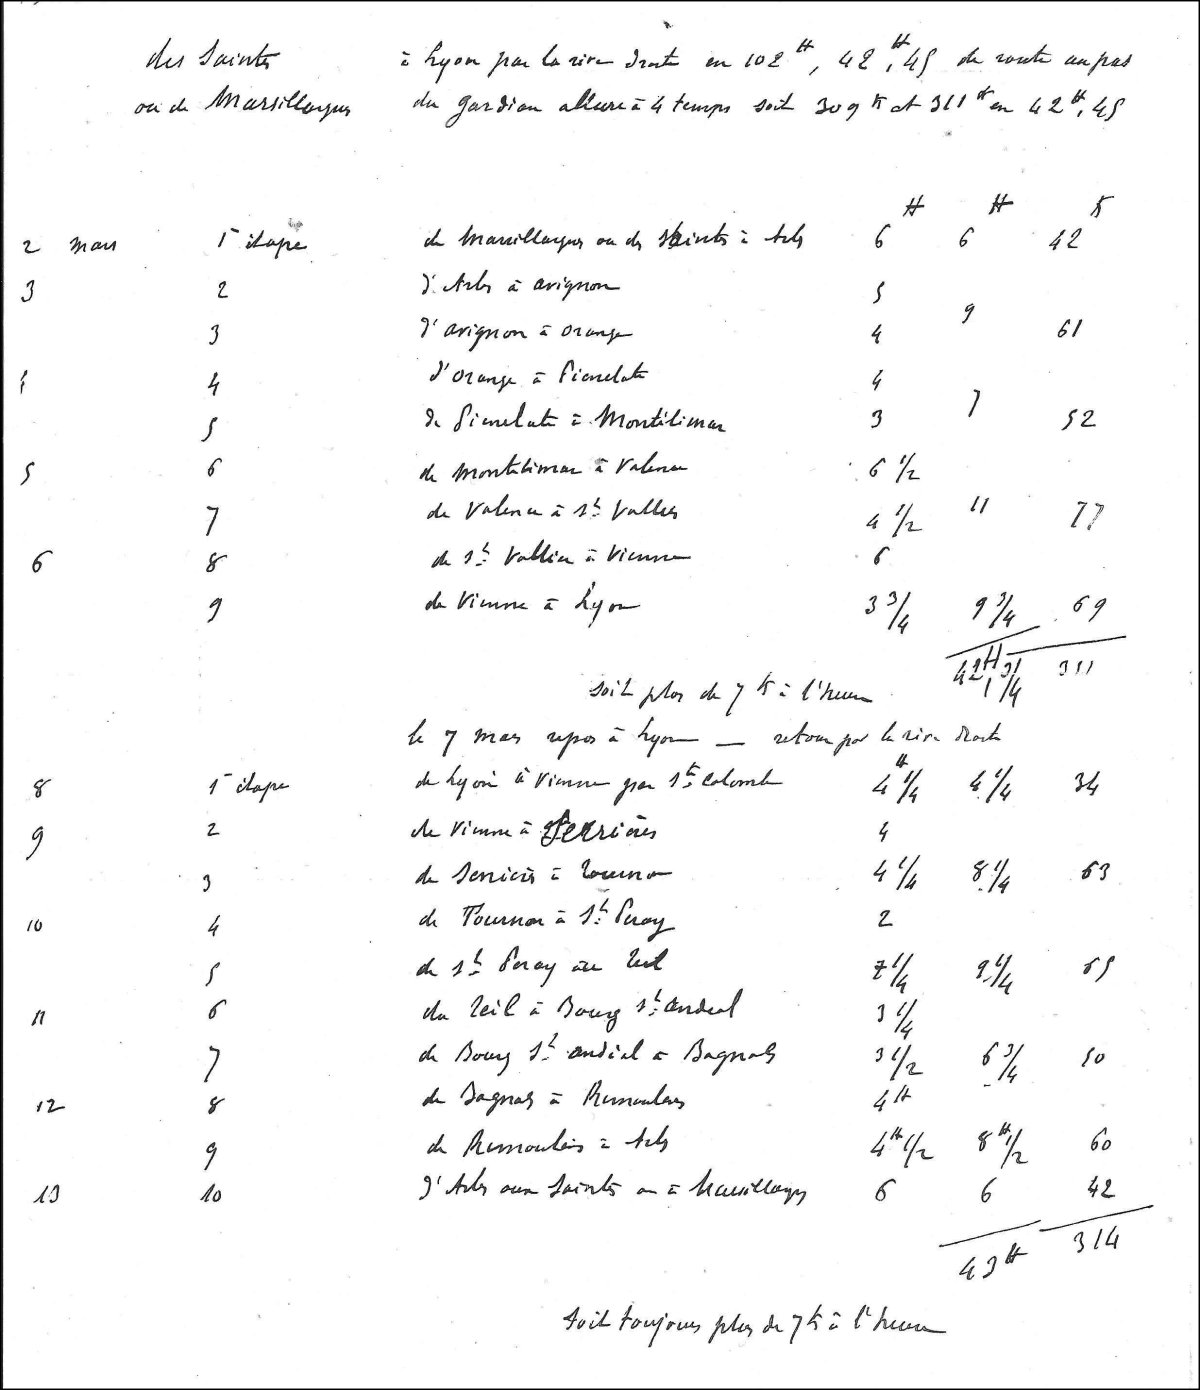 des Saintes à Lyon par la rive droite en 102 H, 42 H, 45 de route au pas
ou de Marsillargues du gardian allure à 4 temps soit 309 K et 311 K en 42 H, 45
H H K
2 mars 1e étape de Marsillargues ou des Saintes à Arles 6 6 42
3 2 d'Arles à avignon 5
3 d'avignon à orange 4 9 61
4 d'orange à Pierrelate 4
5 de Pierrelate à Montélimar 3 7 52
5 6 de Montélimar à Valence 6 1/2
7 de Valence à St Vallier 4 1/2 11 77
6 8 de St Vallier à Vienne 6
9 de Vienne à Lyon 3 3/4 9 3/4 69
42 H 311
soit plus de 7 K à l'heure
le 7 mars repos à Lyon — retour par la rive droite
8 1e étape de Lyon à Vienne par Ste Colombe 4 H 1/4 4 1/4 34
9 2 de Vienne à Serrières 4
3 de Serrières à Tournon 4 1/4 8 1/4 63
10 4 de Tournon à St Peray 2
5 de St Peray au Teil 7 1/4 9 1/4 65
11 6 du Teil à Bourg St Andeol 3 1/4
7 de Bourg St andéol à Bagnols 3 1/2 6 3/4 50
12 8 de Bagnols à Remoulins 4 H
9 de Remoulins à Arles 4 H 1/2 8 H 1/2 60
13 10 d'Arles aux Saintes ou à Marsillargues 6 6 42
43 H 314
soit toujours plus de 7 K à l'heure